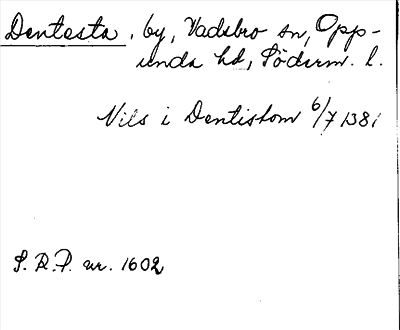 Dentesta, by, Vadsbro sn, Opp-
unda hd, Söderm. l.
Nils i Dentistom 6/7 1381
S. R. P. nr. 1602